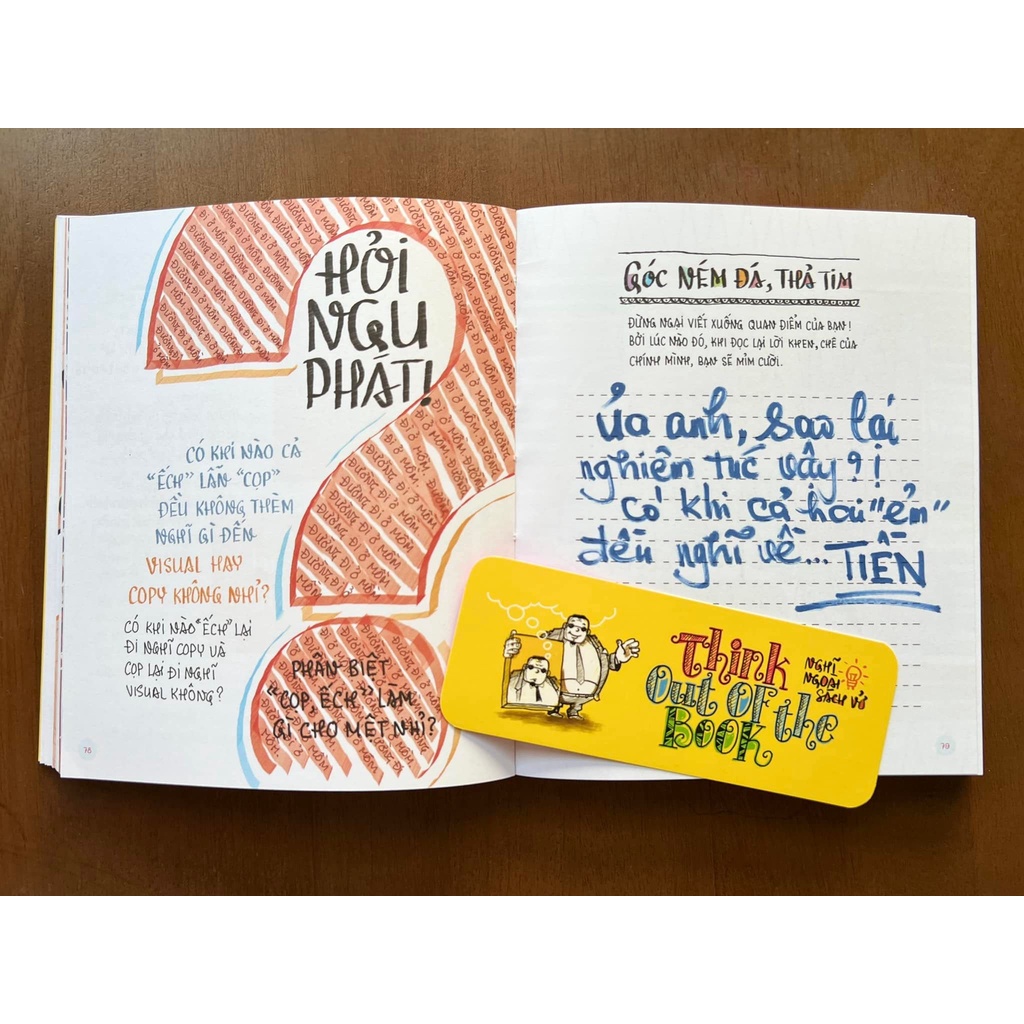 HỎI
NGU
PHÁT!
CÓ KHI NÀO CẢ
“ẾCH” LẪN “CỌP”
ĐỀU KHÔNG THÈM
NGHĨ GÌ ĐẾN
VISUAL HAY
COPY KHÔNG NHỈ?
CÓ KHI NÀO “ẾCH” LẠI
ĐI NGHĨ COPY VÀ
CỌP LẠI ĐI NGHĨ
VISUAL KHÔNG?
PHÂN BIỆT
“CỌP, ẾCH” LÀM
GÌ CHO MỆT NHỈ?
78
GÓC NÉM ĐÁ, THẢ TIM
ĐỪNG NGẠI VIẾT XUỐNG QUAN ĐIỂM CỦA BẠN!
BỞI LÚC NÀO ĐÓ, KHI ĐỌC LẠI LỜI KHEN, CHÊ CỦA
CHÍNH MÌNH, BẠN SẼ MỈM CƯỜI.
Ủa anh, sao lại
nghiêm túc vậy?!
Có khi cả hai "ẻm"
đều nghĩ về... TIỀN
Think
Out Of the
Book
NGHĨ
NGOÀI
SÁCH VỞ
79